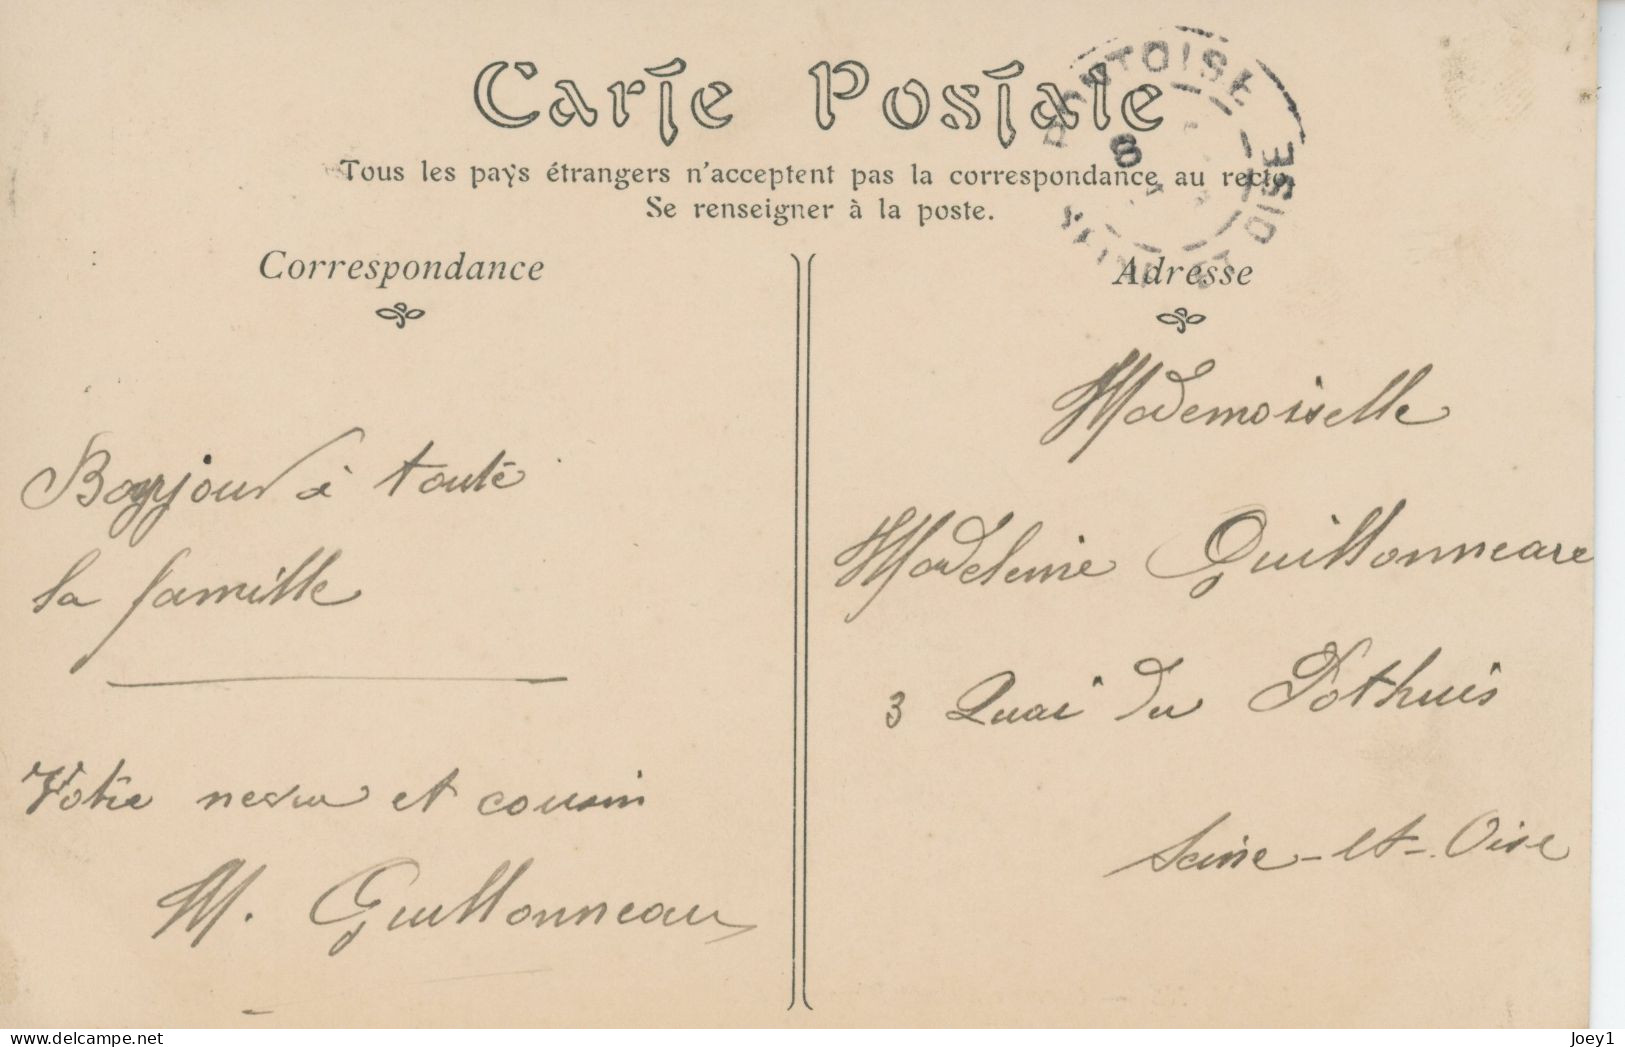 Carte Postale
Tous les pays étrangers n'acceptent pas la correspondance au recto.
Se renseigner à la poste.
PONTOISE
8
SEINE ET OISE
Correspondance
Adresse
Bonjour à toute
la famille
Votre neveu et cousin
M. Guillonneau
Mademoiselle
Madeleine Guillonneau
3 Quai du Pothuis
Seine-et-Oise
delcampe.net
Joey1